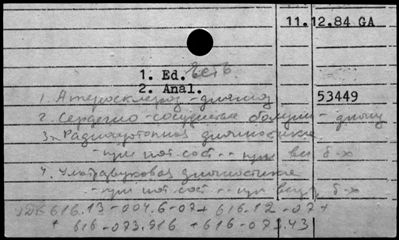 11.12.84 GA
1. Ed. есть
2. Anal.
1. Атеросклероз - диагноз 53449
2. Сердечно-сосудистые болезни - диагн
3. Радиоизотопная диагностика
- при пат. сост. -- при вн. б-х
4. Ультразвуковая диагностика
- при пат. сост. -- при вн. б-х
УДК 616.13-004.6-07+ 616.12-07+
+ 616-073.916 + 616-073.43